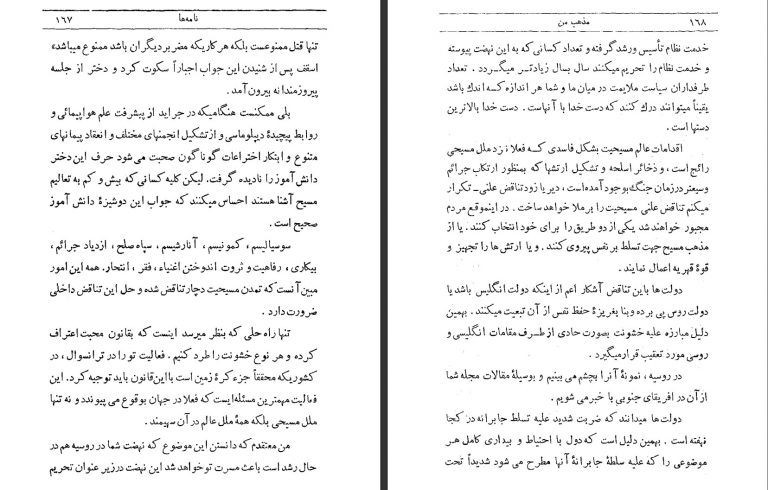 نامه‌ها ۱۶۷
تنها قتل ممنوعست بلکه هر کاریکه مضر بر دیگران باشد ممنوع میباشد»
اسقف پس از شنیدن این جواب اجباراً سکوت کرد و دختر از جلسه
پیروزمندانه بیرون آمد.
بلی ممکنست هنگامیکه در جراید از پیشرفت علم هواپیمائی و
روابط پیچیدهٔ دیپلوماسی و از تشکیل انجمنهای مختلف و انعقاد پیمانهای
متنوع و ابتکار اختراعات گوناگون صحبت می شود حرف این دختر
دانش آموز را نادیده گرفت. لیکن کلیه کسانی که بیش و کم به تعالیم
مسیح آشنا هستند احساس میکنند که جواب این دوشیزهٔ دانش آموز
صحیح است.
سوسیالیسم، کمونیسم، آنارشیسم، سپاه صلح، ازدیاد جرائم،
بیکاری، رفاهیت و ثروت اندوختن اغنیاء، فقر، انتحار. همه این امور
مبین آنست که تمدن مسیحیت دچار تناقض شده و حل این تناقض داخلی
ضرورت دارد.
تنها راه حلی که بنظر میرسد اینست که بقانون محبت اعتراف
کرده و هر نوع خشونت را طرد کنیم. فعالیت تو را در ترانسوال، در
کشوریکه محققاً جزء کرهٔ زمین است با این قانون باید توجیه کرد. این
فعالیت مهمترین مسئله ایست که فعلا در جهان بوقوع می پیوندد و نه تنها
ملل مسیحی بلکه همهٔ ملل عالم در آن سهیمند.
من معتقدم که دانستن این موضوع که نهضت شما در روسیه هم در
حال رشد است باعث مسرت تو خواهد شد این نهضت در زیر عنوان تحریم
۱۶۸ مذهب من
خدمت نظام تأسیس و رشد گرفته و تعداد کسانی که به این نهضت پیوسته
و خدمت نظام را تحریم میکنند سال بسال زیادتر میگردد. تعداد
طرفداران سیاست ملایمت در میان ما و شما هر اندازه که اندك باشد
یقیناً میتوانند درك کنند که دست خدا با آنهاست. دست خدا بالاترین
دستها است.
اقدامات عالم مسیحیت بشکل فاسدی که فعلا نزد ملل مسیحی
رائج است، و ذخائر اسلحه و تشکیل ارتشها که بمنظور ارتکاب جرائم
وسیعتر در زمان جنگ بوجود آمده است، دیر یا زود تناقض علنی ـ تکرار
میکنم تناقض علنی مسیحیت را برملا خواهد ساخت. در اینموقع مردم
مجبور خواهند شد یکی از دو طریق را برای خود انتخاب کنند. یا از
مذهب مسیح جهت تسلط بر نفس پیروی کنند. و یا ارتش ها را تجهیز و
قوهٔ قهریه اعمال نمایند.
دولت ها باین تناقض آشکار اعم از اینکه دولت انگلیس باشد یا
دولت روس پی برده و بنا بغریزهٔ حفظ نفس از آن تبعیت میکنند. بهمین
دلیل مبارزه علیه خشونت بصورت حادی از طرف مقامات انگلیسی و
روسی مورد تعقیب قرار میگیرد.
در روسیه، نمونهٔ آنرا بچشم می بینیم و بوسیلهٔ مقالات مجله شما
از آن در افریقای جنوبی با خبر می شویم.
دولت ها میدانند که ضربت شدید علیه تسلط جابرانه در کجا
نهفته است. بهمین دلیل است که دول با احتیاط و بیداری کامل هر
موضوعی را که علیه سلطهٔ جابرانهٔ آنها مطرح می شود شدیداً تحت